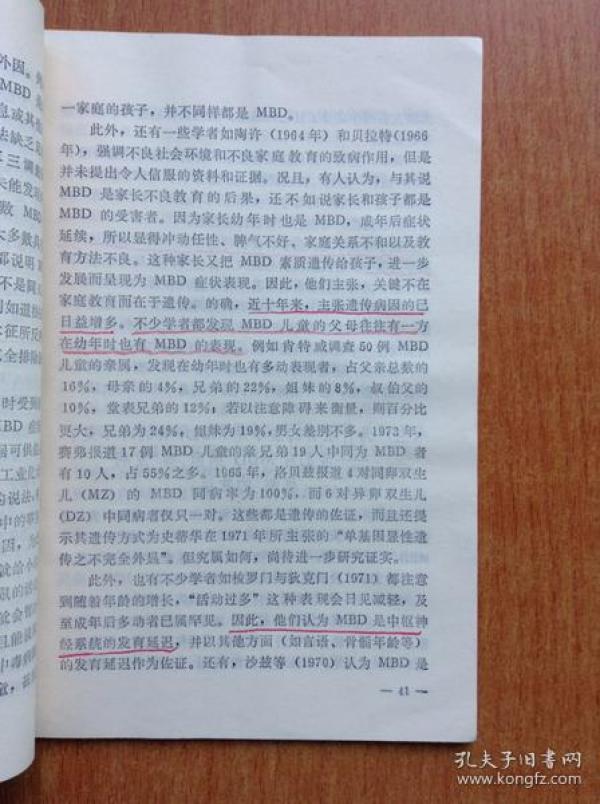 外因。
MBD
息或其他
法缺之
三调
未能发现
致 MBD
大多数
都说明
不是
例如道
征所反
全排除
时受到
MBD
弱可供
工业化
的说法,
中的
因,为
就给小
鼠的活
就会
且能
中毒病
一家庭的孩子,并不同样都是 MBD。
此外,还有一些学者如陶许(1964年)和贝拉特(1966
年),强调不良社会环境和不良家庭教育的致病作用,但是
并未提出令人信服的资料和证据。况且,有人认为,与其说
MBD 是家长不良教育的后果,还不如说家长和孩子都是
MBD 的受害者。因为家长幼年时也是 MBD,成年后症状
延续,所以显得冲动任性、脾气不好、家庭关系不和以及教
育方法不良。这种家长又把 MBD 素质遗传给孩子,进一步
发展而呈现为 MBD 症状表现。因此,他们主张,关键不在
家庭教育而在于遗传。的确,近十年来,主张遗传病因的已
日益增多。不少学者都发现 MBD 儿童的父母往往有一方
在幼年时也有 MBD 的表现。例如肯特威调查50例 MBD
儿童的亲属,发现在幼年时也有多动表现者,占父亲总数的
16%,母亲的4%,兄弟的22%,姐妹的8%,叔伯父的
10%,堂表兄弟的12%;若以注意障碍来衡量,则百分比
更大,兄弟为24%,姐妹为19%,男女差别不多。1973年,
赛弗报道17例 MBD 儿童的亲兄弟19人中同为 MBD 者
有10人,占55%之多。1965年,洛贝兹报道4对同卵双生
儿(MZ)的 MBD 同病率为100%,而6对异卵双生儿
(DZ)中同病者仅只一对。这些都是遗传的佐证,而且还提
示其遗传方式为史蒂华在1971年所主张的“单基因显性遗
传之不完全外显”。但究属如何,尚待进一步研究证实。
此外,也有不少学者如梭罗门与狄克门(1971)都注意
到随着年龄的增长,“活动过多”这种表现会日见减轻,及
至成年后多动者已属罕见。因此,他们认为 MBD 是中枢神
经系统的发育延迟,并以其他方面(如言语、骨骼年龄等)
的发育延迟作为佐证。还有,沙兹等(1970)认为 MBD 是
— 41 —
孔夫子旧书网
www.kongfz.com